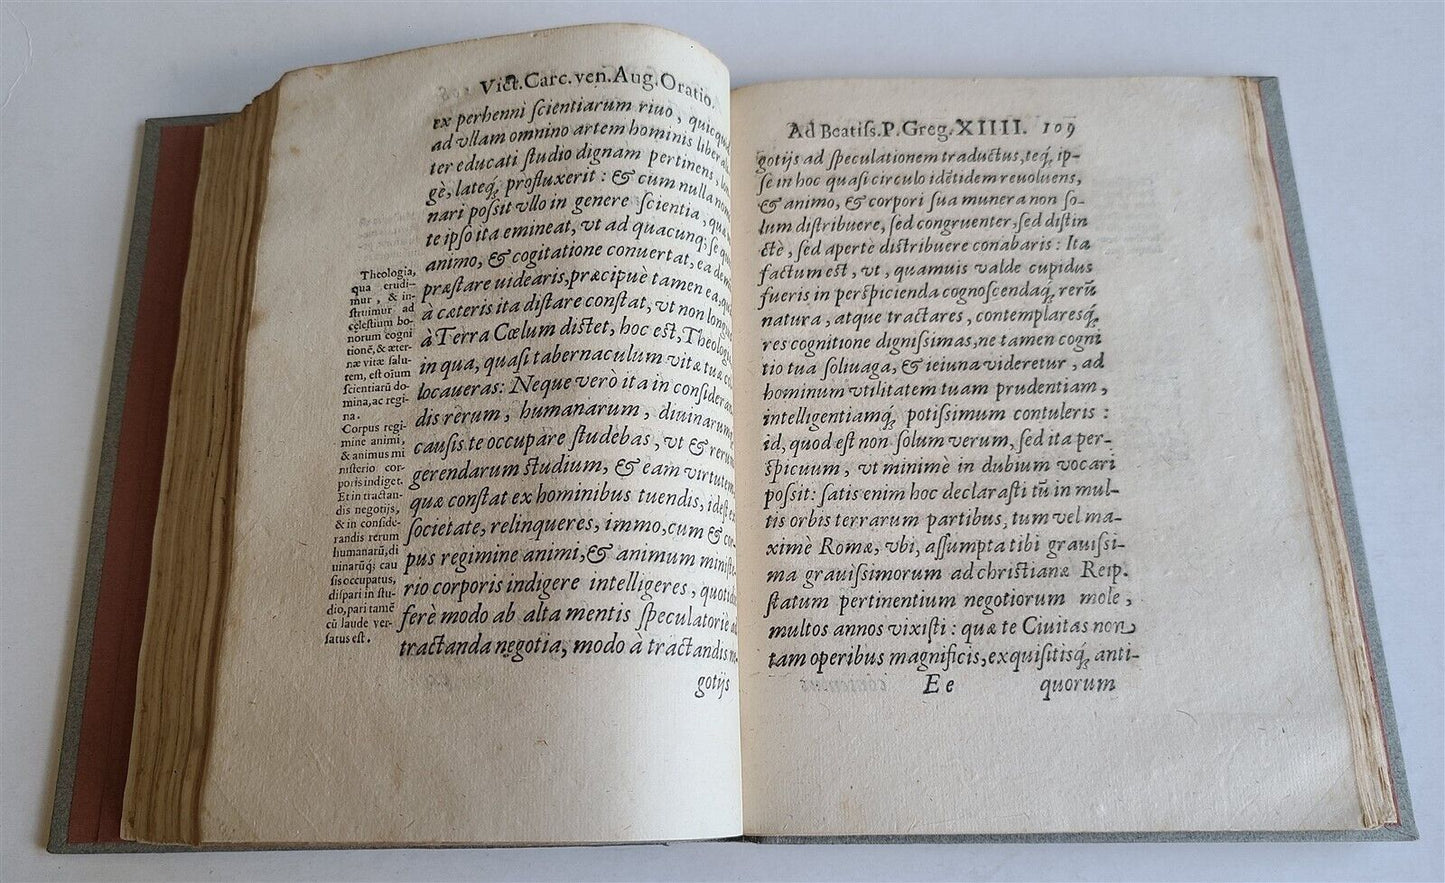 Vict. Carc. ven. Aug. Oratio.
ex perhenni ſcientiarum riuo, quicquid
ad vllam omnino artem hominis liber ali
ter educati ſtudio dignam pertinens,
gè, lateq́; profluxerit: & cum nulla nomi
nari poſsit vllo in genere ſcientia,
te ipſo ita emineat, vt ad quacunq; ſe
animo, & cogitatione conuertat, ea
præſtare uidearis, præcipuè tamen ea,
à cæteris ita diſtare conſtat, vt non longiùs
à Terra Cœlum diſtet, hoc eſt, Theologia,
in qua, quaſi tabernaculum vitæ tuæ
locaueras: Neque verò ita in conſideran
dis rerum, humanarum, diuinarum
cauſis te occupare ſtudebas, vt & rerum
gerendarum ſtudium, & eam virtutem,
quæ conſtat ex hominibus tuendis, ideſt
ſocietate, relinqueres, immo, cum & cor-
pus regimine animi, & animum miniſte-
rio corporis indigere intelligeres,
ferè modo ab alta mentis ſpeculatoriè ad
tractanda negotia, modo à tractandis ne-
gotijs
Theologia,
qua erudi-
mur, & in-
ſtruimur ad
celeſtium bo-
norum cogni
tionē, & æter-
næ vitæ ſalu-
tem, eſt oīum
ſcientiarū do-
mina, ac regi-
na.
Corpus regi-
mine animi,
& animus mi
niſterio cor-
poris indiget.
Et in tractan-
dis negotijs,
& in conſide-
randis rerum
humanarū, di
uinarūq; cau
ſis occupatus,
diſpari in ſtu-
dio, pari tamē
cū laude ver-
ſatus eſt.
Ad Beatiſs. P. Greg. XIIII. 109
gotijs ad ſpeculationem traductus, teq́; ip-
ſe in hoc quaſi circulo idētidem reuoluens,
& animo, & corpori ſua munera non ſo-
lum diſtribuere, ſed congruenter, ſed diſtin
ctè, ſed apertè diſtribuere conabaris: Ita
factum eſt, vt, quamuis valde cupidus
fueris in perſpicienda cognoſcendaq́; rerū
natura, atque tractares, contemplaresq́;
res cognitione digniſsimas, ne tamen cogni
tio tua ſoliuaga, & ieiuna videretur, ad
hominum vtilitatem tuam prudentiam,
intelligentiamq́; potiſsimum contuleris:
id, quod eſt non ſolum verum, ſed ita per-
ſpicuum, vt minimè in dubium vocari
poſsit: ſatis enim hoc declaraſti tū in mul-
tis orbis terrarum partibus, tum vel ma-
ximè Romæ, vbi, aſſumpta tibi grauiſsi-
ma grauiſsimorum ad chriſtianæ Reip.
ſtatum pertinentium negotiorum mole,
multos annos vixiſti: quæ te Ciuitas non
tam operibus magnificis, exquiſitisq́; anti-
Ee quorum